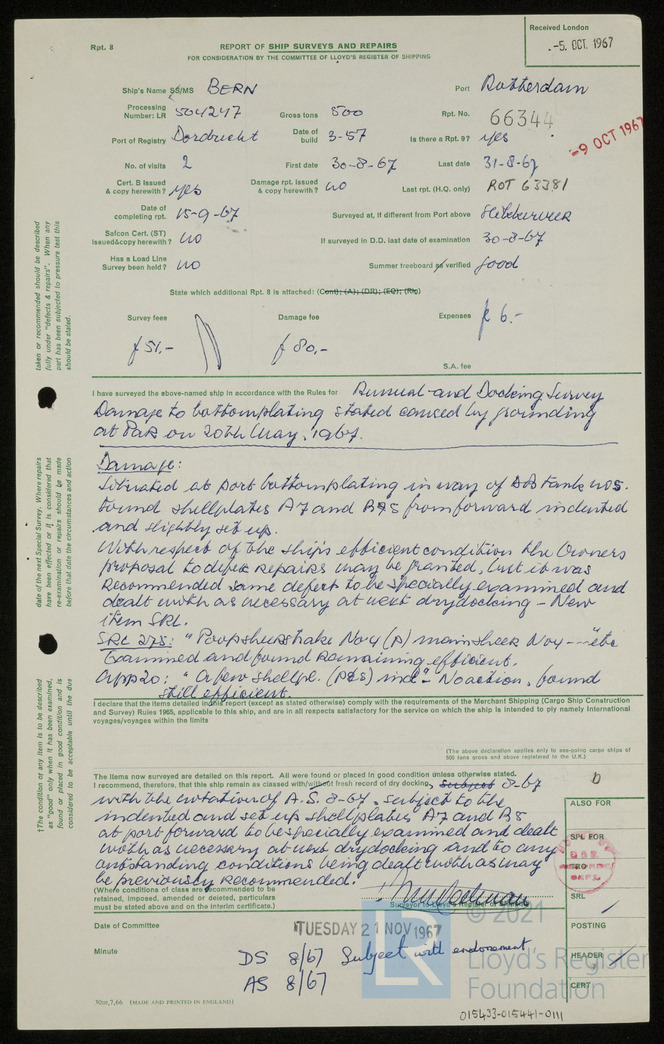 Rpt. 8
REPORT OF SHIP SURVEYS AND REPAIRS
FOR CONSIDERATION BY THE COMMITTEE OF LLOYD'S REGISTER OF SHIPPING
Received London
-5. OCT. 1967
Ship's Name SS/MS BERN
Port Rotterdam
Processing Number: LR 504247
Gross tons 500
Rpt. No. 66344
-9 OCT 1967
Port of Registry Dordrecht
Date of build 3-57
Is there a Rpt. 9? yes
No. of visits 2
First date 30-8-67
Last date 31-8-67
Cert. B Issued & copy herewith? yes
Damage rpt. issued & copy herewith? no
Last rpt. (H.Q. only) ROT 63381
Date of completing rpt. 15-9-67
Surveyed at, if different from Port above
Safcon Cert. (ST) issued & copy herewith? no
If surveyed in D.D. last date of examination 30-8-67
Has a Load Line Survey been held? no
Summer freeboard as verified good
State which additional Rpt. 8 is attached: (Cont); (A); (DR); (EQ); (Rlp)
Survey fees
Damage fee
Expenses
f 51,-
f 80,-
f 6.-
S.A. fee
I have surveyed the above-named ship in accordance with the Rules for Annual and Docking Survey
Damage to bottomplating stated caused by grounding
at on 20th May, 1967.
Damage:
Situated at port bottomplating in way of DB tank no 5.
Found shellplates A7 and B8 from forward indented
and slightly set up.
With respect of the ship's efficient condition the Owners
proposal to defer repairs may be granted, but it was
recommended same defect to be specially examined and
dealt with as necessary at next drydocking - New
item SRL.
SRL 275: "Poop sheerstrake No 4 (P) mainsheer No 4 --- etc
Examined and found remaining efficient.
App 20: "A few shellpl. (P&S) ind" - No action, found
still efficient.
I declare that the items detailed in this report (except as stated otherwise) comply with the requirements of the Merchant Shipping (Cargo Ship Construction
and Survey) Rules 1965, applicable to this ship, and are in all respects satisfactory for the service on which the ship is intended to ply namely International
voyages/voyages within the limits
(The above declaration applies only to sea-going cargo ships of
500 tons gross and above registered to the U.K.)
The items now surveyed are detailed on this report. All were found or placed in good condition unless otherwise stated.
I recommend, therefore, that this ship remain as classed with/without fresh record of dry docking, Subject 8-67
with the notation of A.S. 8-67, subject to the
indented and set up shellplates A7 and B8
at port forward to be specially examined and dealt
with as necessary at next drydocking and to any
outstanding conditions being dealt with as may
be previously recommended.
(Where conditions of class are recommended to be
retained, imposed, amended or deleted, particulars
must be stated above and on the interim certificate.)
Surveyor to Lloyd's Register of Shipping
Date of Committee
TUESDAY 21 NOV 1967
Minute
DS 8/67 Subject with endorsement
AS 8/67
ALSO FOR
SPL FOR
SRL
POSTING
HEADER
CERT
30m,7,66 (MADE AND PRINTED IN ENGLAND)
© 2021
LR
Lloyd's Register
Foundation
015433-015441-0111
taken or recommended should be described
fully under "defects & repairs". When any
part has been subjected to pressure test this
should be stated.
date of the next Special Survey. Where repairs
have been effected or if is considered that
re-examination or repairs should be made
before that date the circumstances and action
†The condition of any item is to be described
as "good" only when it has been examined,
found or placed in good condition and is
considered to be acceptable until the due